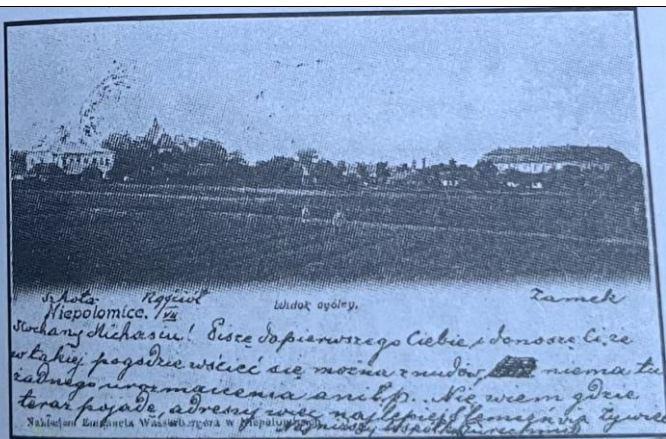 Szkoła Kościół Zamek
Niepołomice. /VII Widok ogólny.
Kochany Michasiu! Piszę do pierwszego Ciebie, donoszę Ci że
w takiej pogodzie wściec się można z nudów, niema tu
żadnego urozmaicenia ani t.p. Nie wiem gdzie
teraz pojadę, adresy więc najlepiej
Nakładem Wasserbergera w Niepołomicach